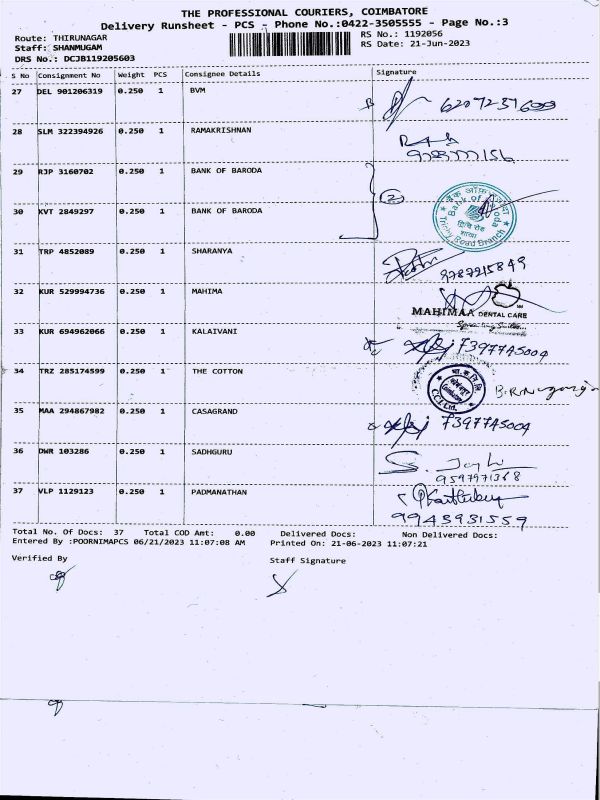 THE PROFESSIONAL COURIERS, COIMBATORE
Delivery Runsheet - PCS - Phone No.:0422-3505555 - Page No.:3
Route: THIRUNAGAR RS No.: 1192056
Staff: SHANMUGAM RS Date: 21-Jun-2023
DRS No.: DCJB119205603
S No Consignment No Weight PCS Consignee Details Signature
27 DEL 901206319 0.250 1 BVM
28 SLM 322394926 0.250 1 RAMAKRISHNAN
29 RJP 3160702 0.250 1 BANK OF BARODA
2
30 KVT 2849297 0.250 1 BANK OF BARODA
Bank of Baroda
Trichy Road Branch
31 TRP 4852089 0.250 1 SHARANYA
32 KUR 529994736 0.250 1 MAHIMA
MAHIMAA DENTAL CARE
33 KUR 694962066 0.250 1 KALAIVANI
7397745004
34 TRZ 285174599 0.250 1 THE COTTON
35 MAA 294867982 0.250 1 CASAGRAND
7397745004
36 DWR 103286 0.250 1 SADHGURU
37 VLP 1129123 0.250 1 PADMANATHAN
9943931559
Total No. Of Docs: 37 Total COD Amt: 0.00 Delivered Docs: Non Delivered Docs:
Entered By :POORNIMAPCS 06/21/2023 11:07:08 AM Printed On: 21-06-2023 11:07:21
Verified By Staff Signature